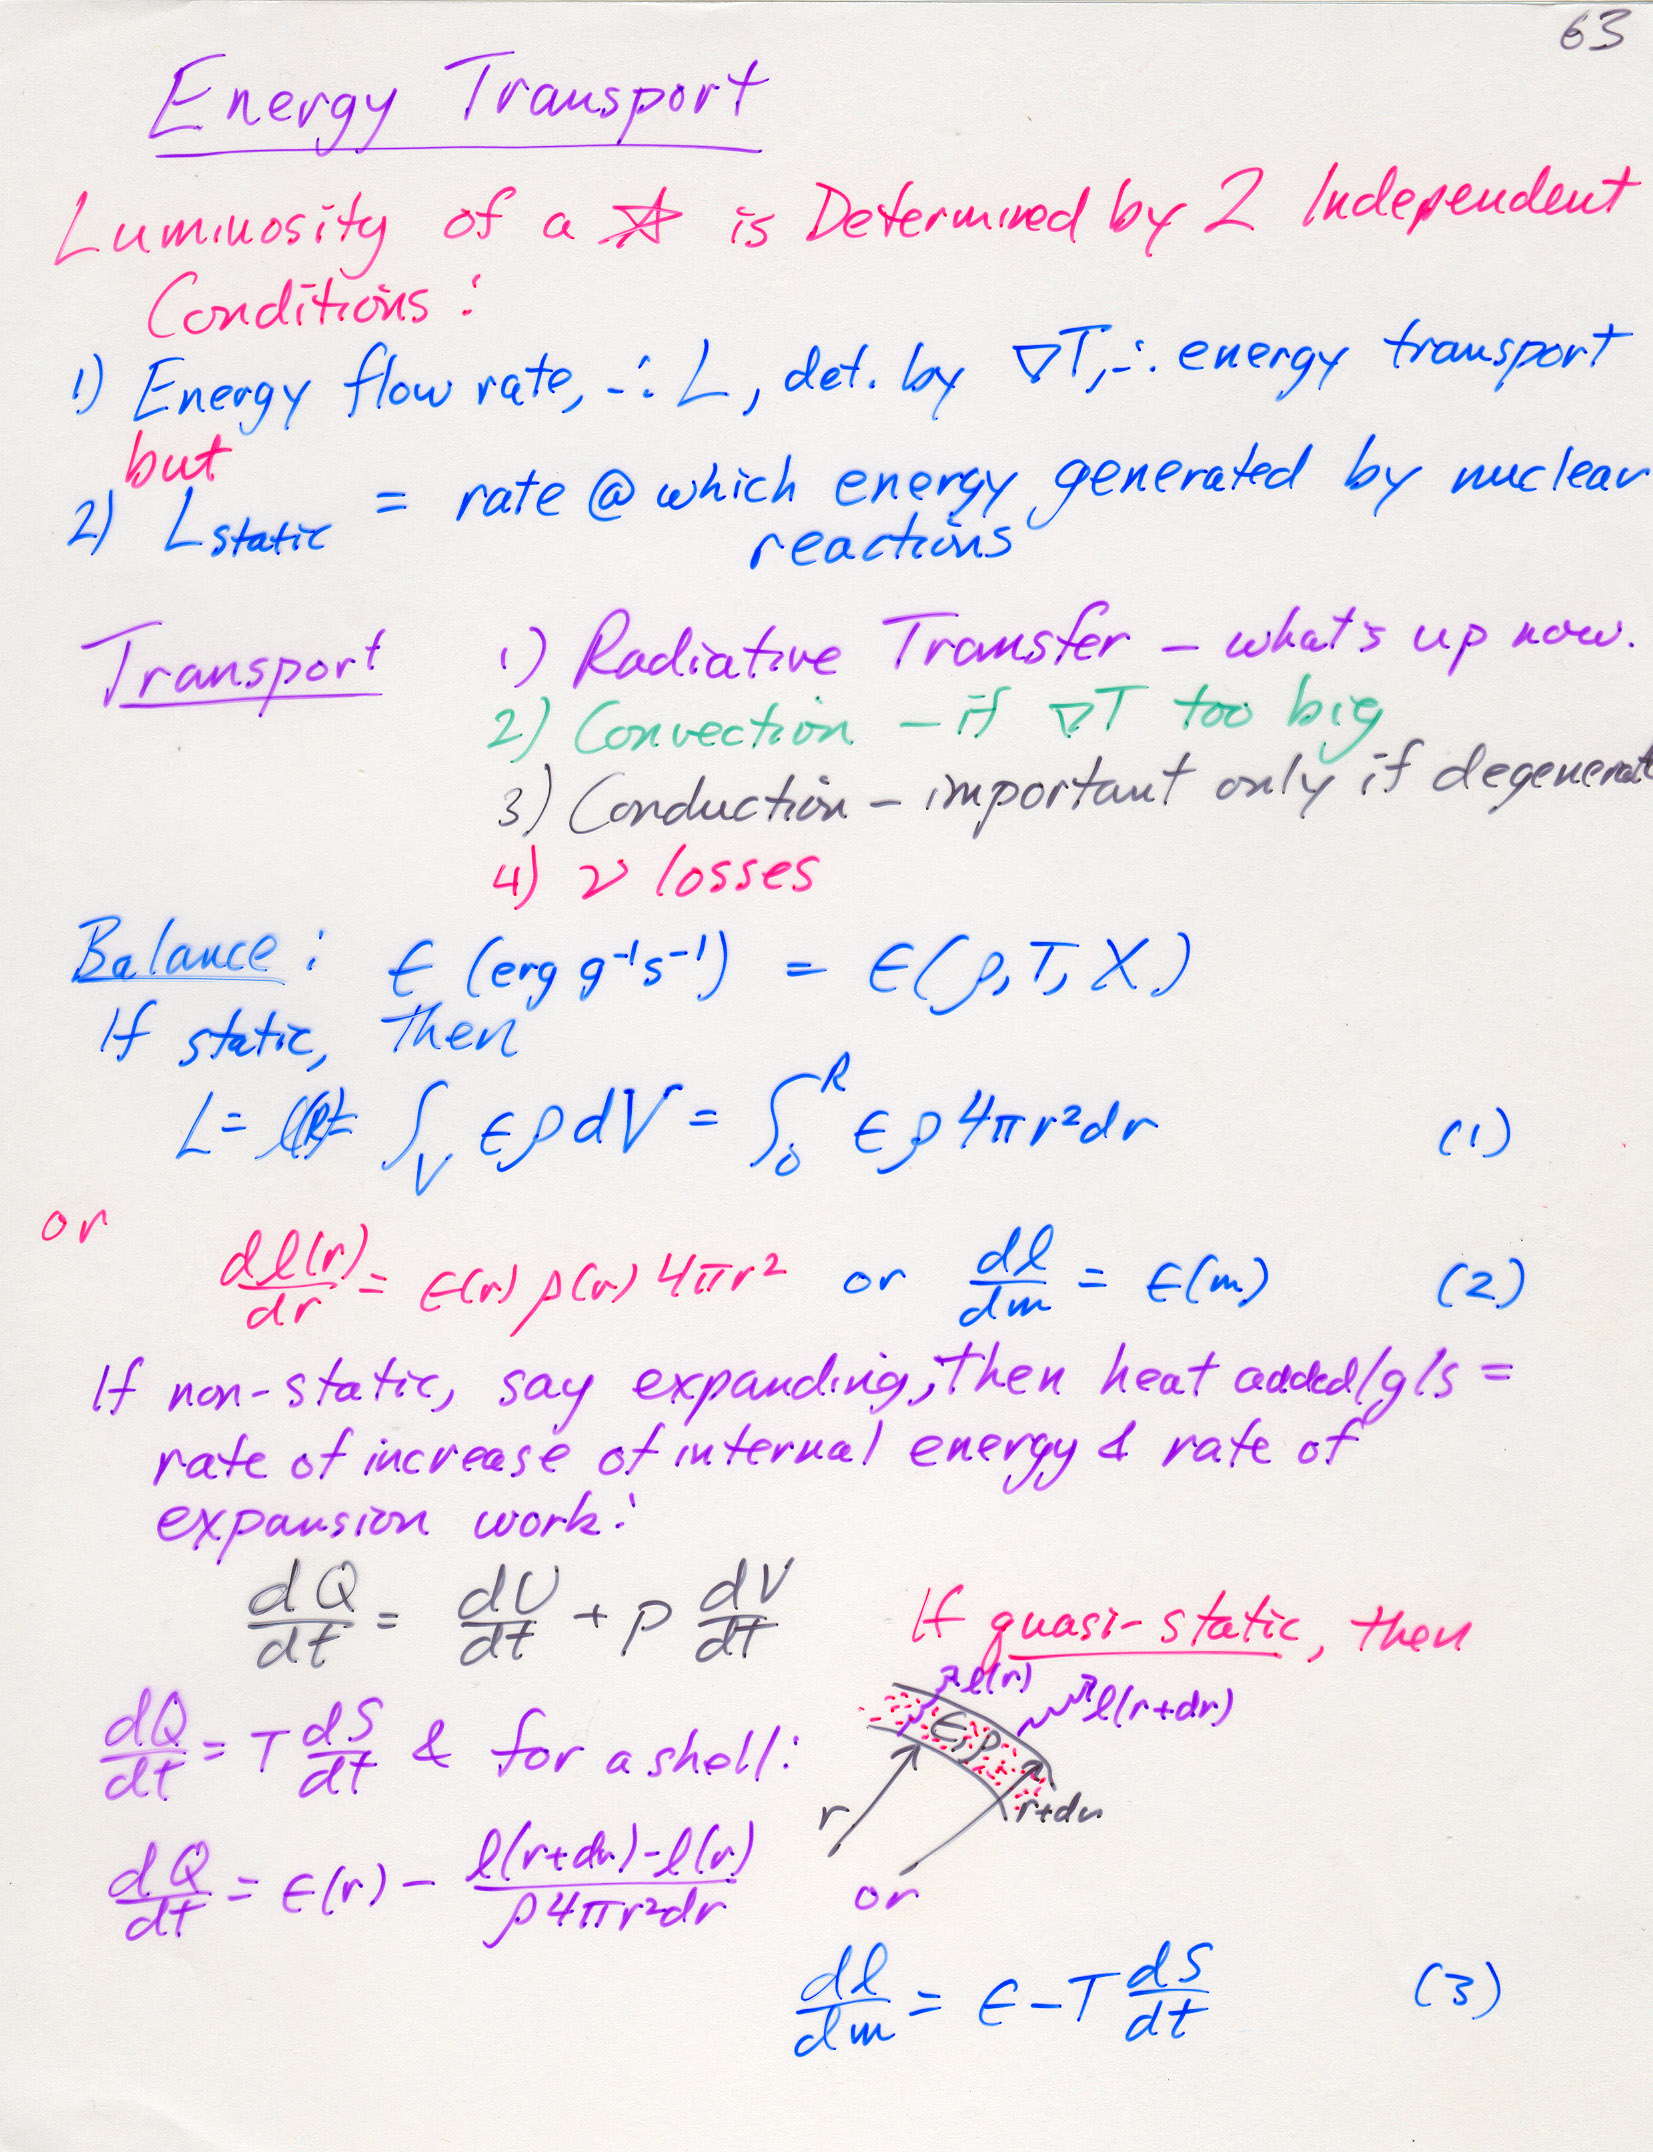 63
Energy Transport
Luminosity of a ☆ is Determined by 2 Independent
Conditions:
1) Energy flow rate, ∴ L, det. by ∇T, ∴ energy transport
but
2) L_static = rate @ which energy generated by nuclear
reactions
Transport 1) Radiative Transfer – what's up now.
2) Convection – if ∇T too big
3) Conduction – important only if degenerat
4) ν losses
Balance: ϵ (erg g⁻¹s⁻¹) = ϵ(ρ, T, X)
If static, then
L = l(R) = ∫_V ϵρdV = ∫_0^R ϵρ4πr²dr (1)
or
dl(r)/dr = ϵ(r) ρ(r) 4πr² or dl/dm = ϵ(m) (2)
If non-static, say expanding, then heat added/g/s =
rate of increase of internal energy & rate of
expansion work:
dQ/dt = dU/dt + P dV/dt
If quasi-static, then
dQ/dt = T dS/dt & for a shell:
l(r) l(r+dr)
ϵ, ρ
r r+dr
dQ/dt = ϵ(r) – (l(r+dr) - l(r))/(ρ4πr²dr) or
dl/dm = ϵ – T dS/dt (3)